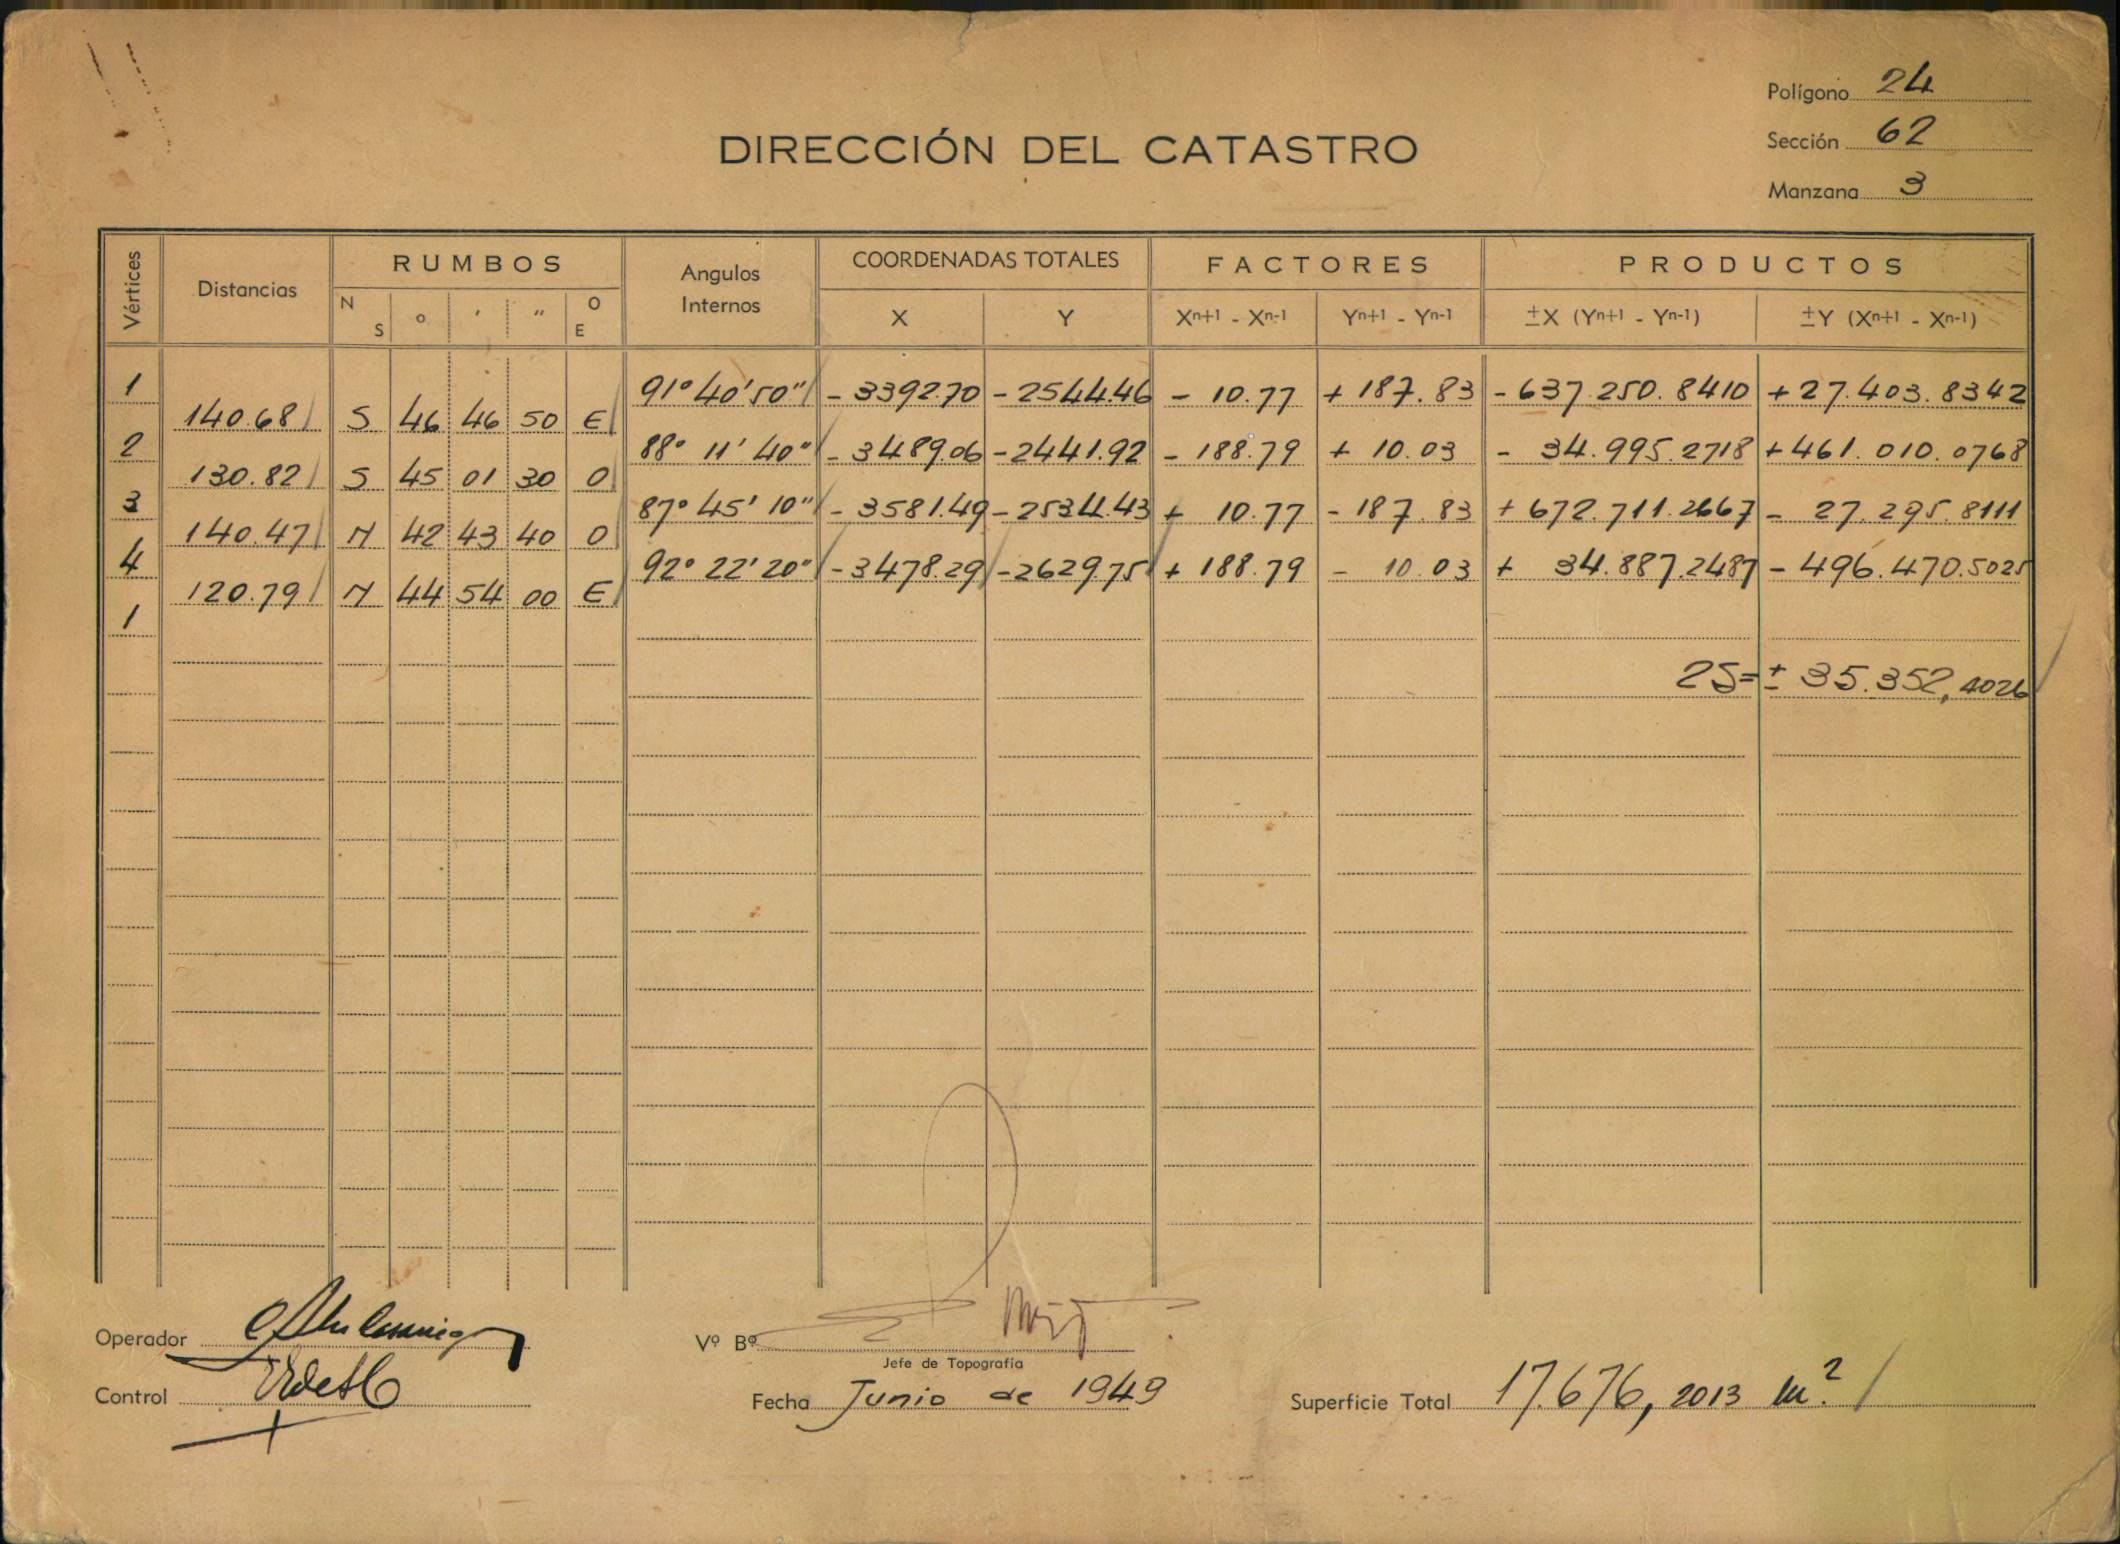 Polígono 24
DIRECCIÓN DEL CATASTRO
Sección 62
Manzana 3
Vértices Distancias RUMBOS Angulos Internos COORDENADAS TOTALES FACTORES PRODUCTOS
N S ° ' " O E X Y Xn+1 - Xn-1 Yn+1 - Yn-1 ±X (Yn+1 - Yn-1) ±Y (Xn+1 - Xn-1)
1 91° 40' 50" - 3392.70 - 2544.46 - 10.77 + 187.83 - 637.250.8410 + 27.403.8342
140.68 S 46 46 50 E
2 88° 11' 40" - 3489.06 - 2441.92 - 188.79 + 10.03 - 34.995.2718 + 461.010.0768
130.82 S 45 01 30 O
3 87° 45' 10" - 3581.49 - 2534.43 + 10.77 - 187.83 + 672.711.2667 - 27.295.8111
140.47 N 42 43 40 O
4 92° 22' 20" - 3478.29 - 2629.75 + 188.79 - 10.03 + 34.887.2487 - 496.470.5025
120.79 N 44 54 00 E
1
2S= ± 35.352,4026
Operador
Vº Bº
Jefe de Topografía
Control
Fecha Junio de 1949
Superficie Total 17.676,2013 m²